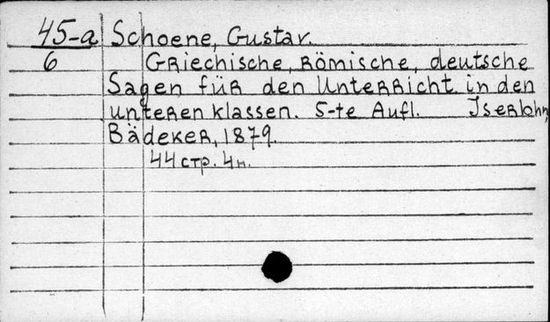 45-a Schoene, Gustav.
6 Griechische, Römische, deutsche
Sagen für den Unterricht in den
unteren klassen. 5-te Aufl. Iserlohn,
Bädeker, 1879.
44 стр. 4н.